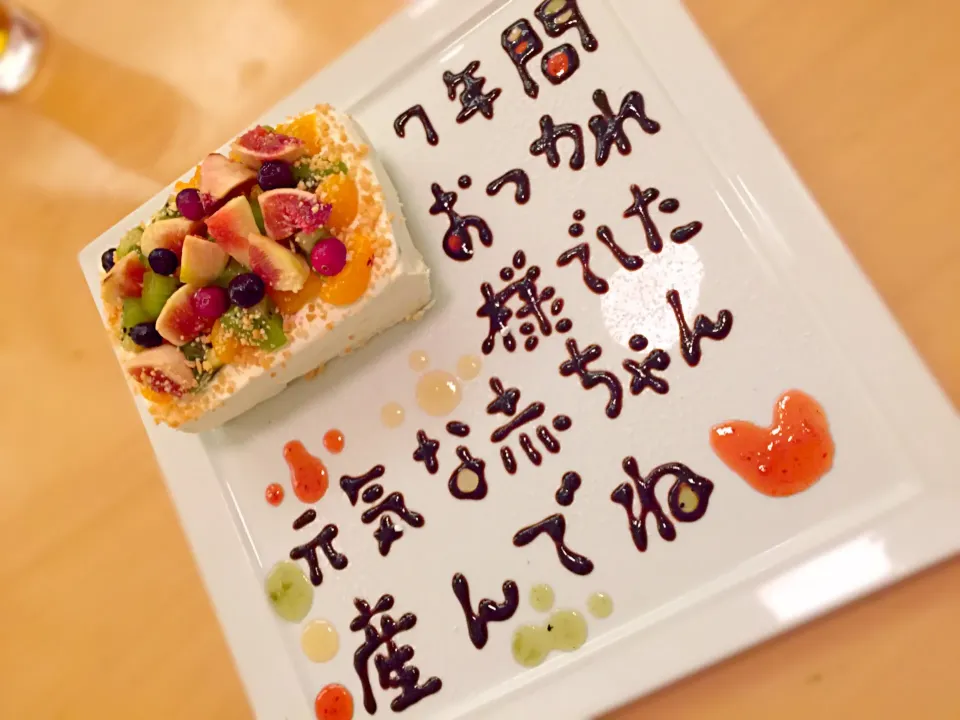 7年間
おつかれ
様でした
元気な赤ちゃん
産んでね